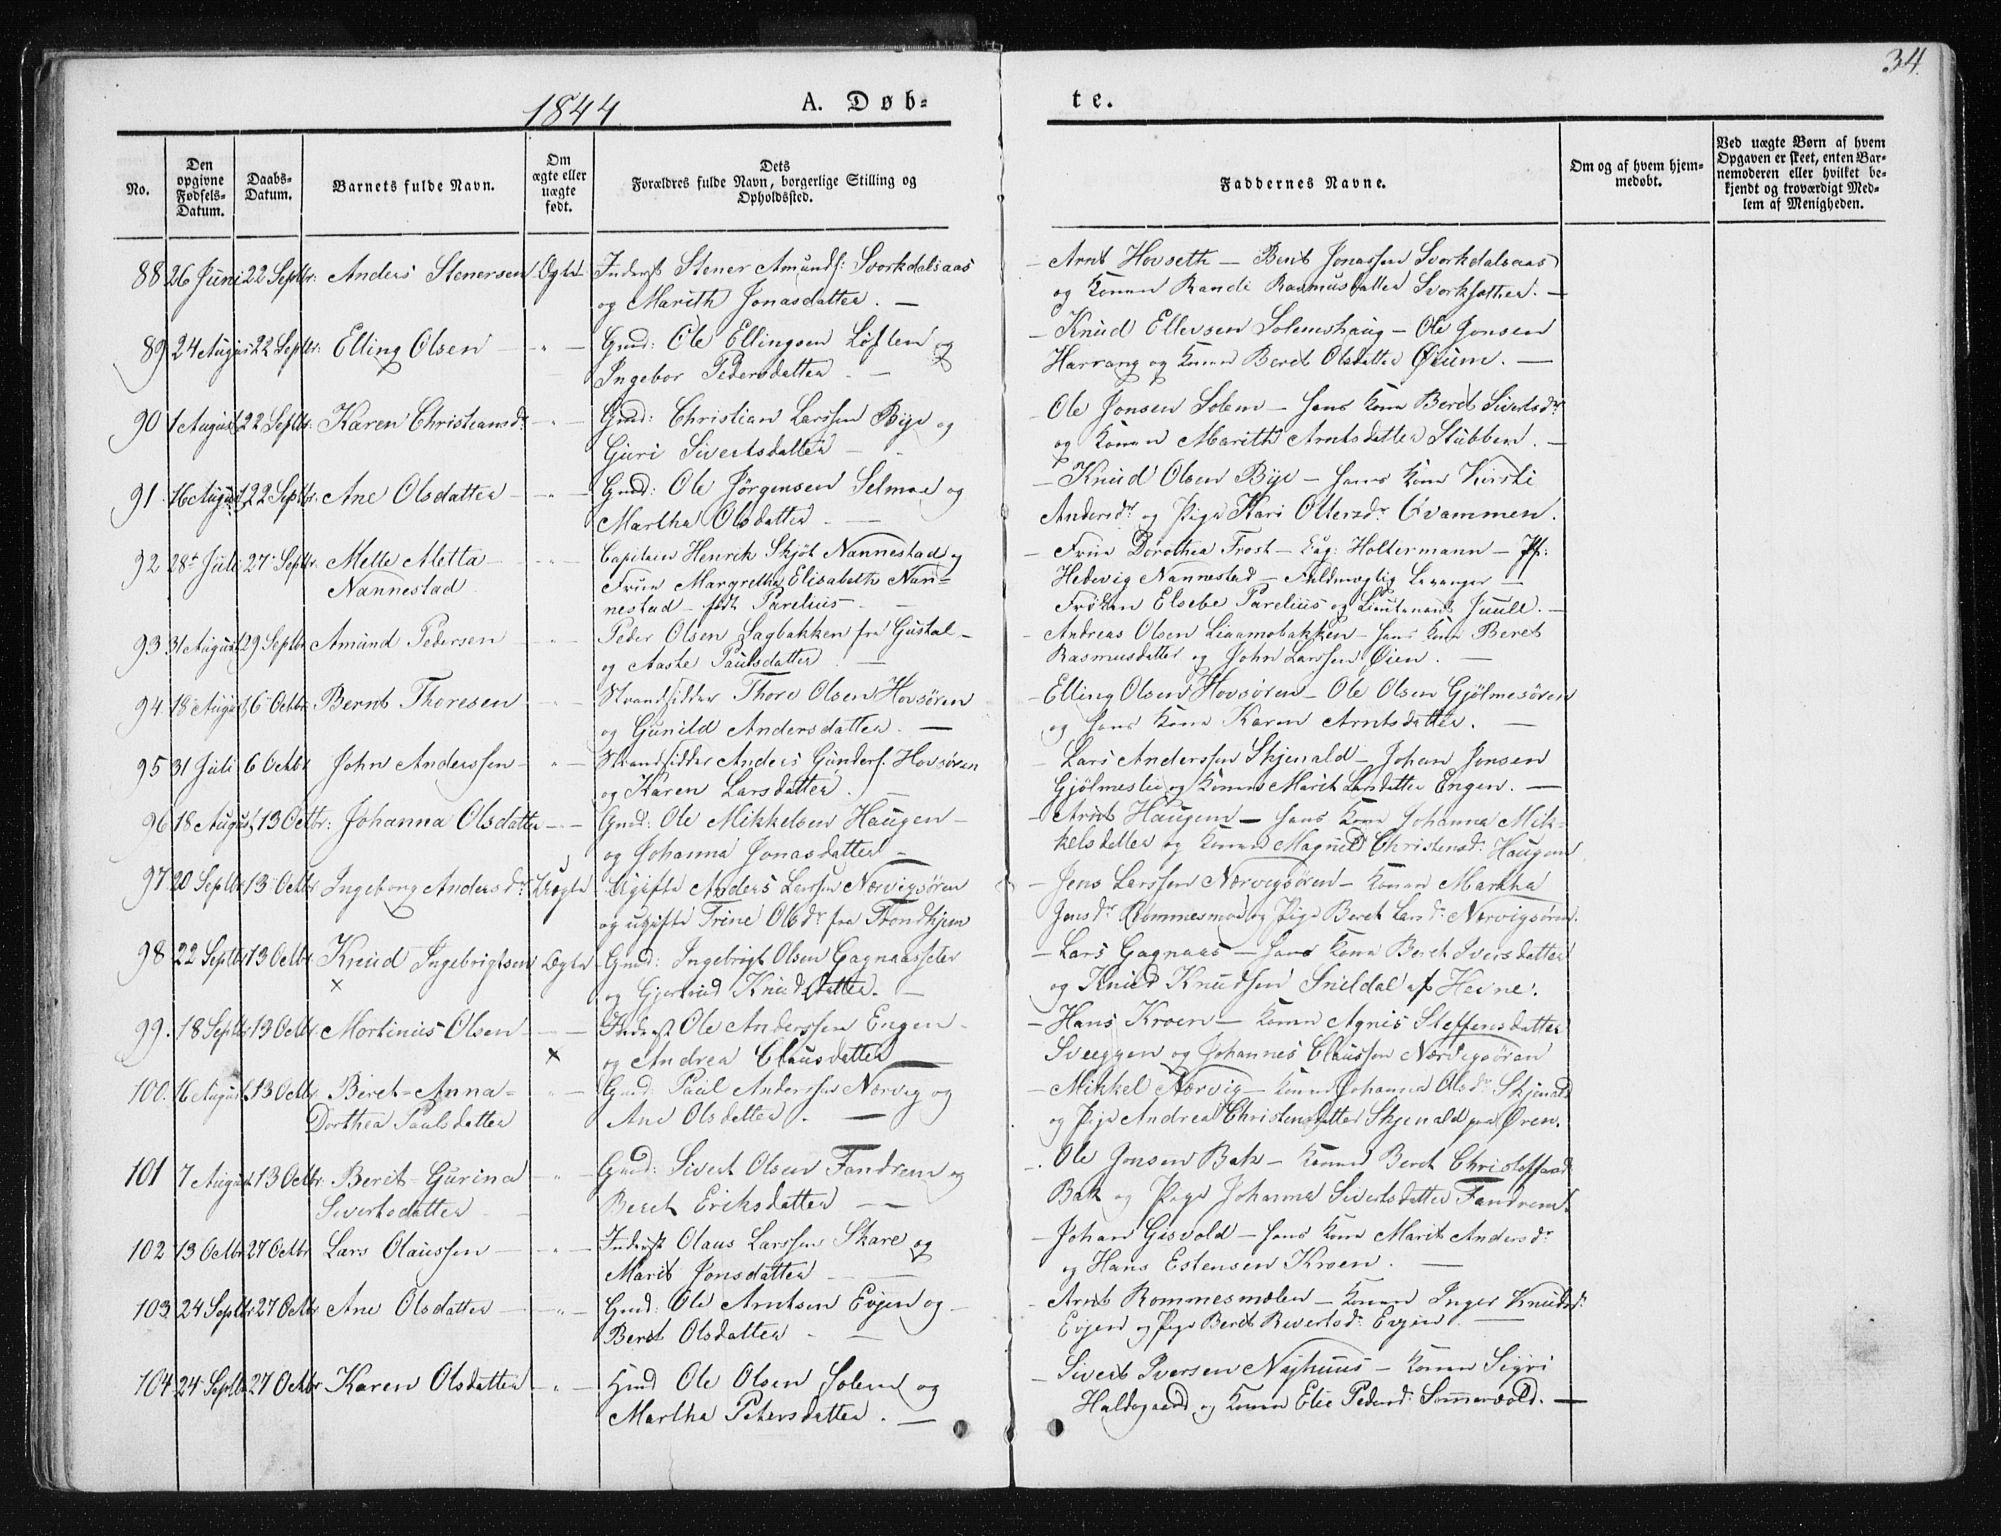 34
1844
A. Døb-
te.
No.
Den opgivne Fødsels-Datum.
Daabs-Datum.
Barnets fulde Navn.
Om ægte eller uægte født.
Dets Forældres fulde Navn, borgerlige Stilling og Opholdssted.
Faddernes Navne.
Om og af hvem hjemmedøbt.
Ved uægte Børn af hvem Opgaven er skeet, enten Barnemoderen eller hvilket bekjendt og troværdigt Medlem af Menigheden.
88 26 Juni 22 Septbr: Anders Stenersen Ægte Inderst Stener Amunds: Svorkdalsaas
og Marith Jonasdatter. —
— Arnt Hovseth — Berit Jonassen Svorkdalsaas
og Konen Randi Rasmusdatter
89 24 August 22 Septbr: Elling Olsen — " — Gmd: Ole Ellingsen Løften og
Ingebor Pedersdatter. —
— Knud Ellevsen Solemshaug — Ole Jonsen
Harrang og Konen Beret Olsdatter Øium. —
90 1 August 22 Septbr: Karen Christiansdr — " — Gmd: Christian Larssen Bye og
Guri Sivertsdatter —
Ole Jonsen Solem — hans Kone Beret Sivertsdr
og Konen Marith Arntsdatter Stubben. —
91. 16 August 22 Septbr: Ane Olsdatter — " — Gmd: Ole Jørgensen Selmoe og
Martha Olsdatter. —
— Knud Olsen Bye — hans Kone Kirsti
Andersdr og Pige Kari Ottersdr Qvammen.
92 28de Juli 27 Septbr. Mette Aletta Nannestad — " — Capitain Henrik Skjöt Nannestad og
Fruen Margretha Elisabeth Nan-
nestad — født Parelius. —
— Frue Dorothea Frost — Holtermann — Jfr:
Hedevig Nannestad — Fuldmægtig Levanger —
Frøken Elsebe Parelius og Lieutenant Juull. —
93 31 August 29 Septbr Amund Pedersen — " — Peder Olsen Sagbakken fra Gustal —
og Aaste Paulsdatter. —
— Andreas Olsen Liaamobakken — hans Kone Beret
Rasmusdatter og John Larssen Øien. —
94 18 August 6 Octbr Bernt Thoresen — " — Strandsidder Thore Olsen Hovsøren
og Gunild Andersdatter. —
— Elling Olsen Hovsøren — Ole Olsen Gjölmesøren
og hans Kone Karen Arntsdatter. —
95 31 Juli 6 Octbr John Anderssen — " — Strandsidder Anders Gunders. Hovsøren
og Karen Larsdatter. —
— Lars Anderssen Skjenald — Johan Jonsen
Gjölmeslie og Konen Marit Larsdatter Engen. —
96 18 August 13 Octbr: Johanna Olsdatter — " — Gmd: Ole Mikkelsen Haugen —
og Johanna Jonasdatter —
— Arnt Haugen — hans Kone Johanna Mik-
kelsdatter og Konen Magnild Christensd: Haugen
97 20 Septbr 13 Octbr Ingeborg Andersdr Uægte Ugifte Anders Larssen Nervigsøren
og ugifte Trine Olsdr fra Trondhjem
— Jens Larssen Nervigsøren — Konen Martha
Jensdr Rommesmoe og Pige Beret Larsdr Nervigsøren.
98 22 Septbr 13 Octbr Knud Ingebrigtsen × Ægte Gmd: Ingebrigt Olsen Gagnaassetер
og Gjertrud Knudsdatter. —
— Lars Gagnaas — hans Kone Beret Iversdatter
og Knud Knudsen Snildal af Hevne.
99. 18 Septbr 13 Octbr Mortinus Olsen — × Inderst Ole Anderssen Engen —
og Andrea Clausdatter —
— Hans Kroen — Konen Agnis Steffensdatter
Sveeggen og Johannes Claussen Nervigsøren
100. 16 August 13 Octbr Beret-Anna-
Dorthea Paulsdatter — " — Gmd: Paul Anderssen Nervig og
Ane Olsdatter. —
— Mikkel Nervig — Konen Johanna Olsdr Skjenald
og Pige Andrea Christensdatter Skjenald paa Øren.
101 7 August 13 Octbr: Berit-Gurina
Sivertsdatter — " — Gmd: Sivert Olsen Fandrem og
Beret Eriksdatter —
— Ole Jonsen Bak — Konen Beret
Bak og Pige Johanna Sivertsdatter Fandrem.
102 13 Octbr 27 Octbr Lars Olaussen — " — Inderst Olaus Larssen Skare og
Marit Jonsdatter —
— Johan Gisvold — hans Kone Marit Andersdr
og Hans Estensen Kroen. —
103 24 Septbr 27 Octbr Ane Olsdatter — " — Gmd: Ole Arntsen Evjen og —
Beret Olsdatter. —
— Arnt Rommesmoelen — Konen Inger Knudsd:
Evjen og Pige Beret Sivertsd: Evjen. —
104 24 Septbr 27 Octbr Karen Olsdatter — " — Gmd Ole Olsen Solem og
Martha Petersdatter. —
— Sivert Iversen Nyhuus — Konen Sigri
Haldogaard og Konen Elie Pedersd: Sommervold. —